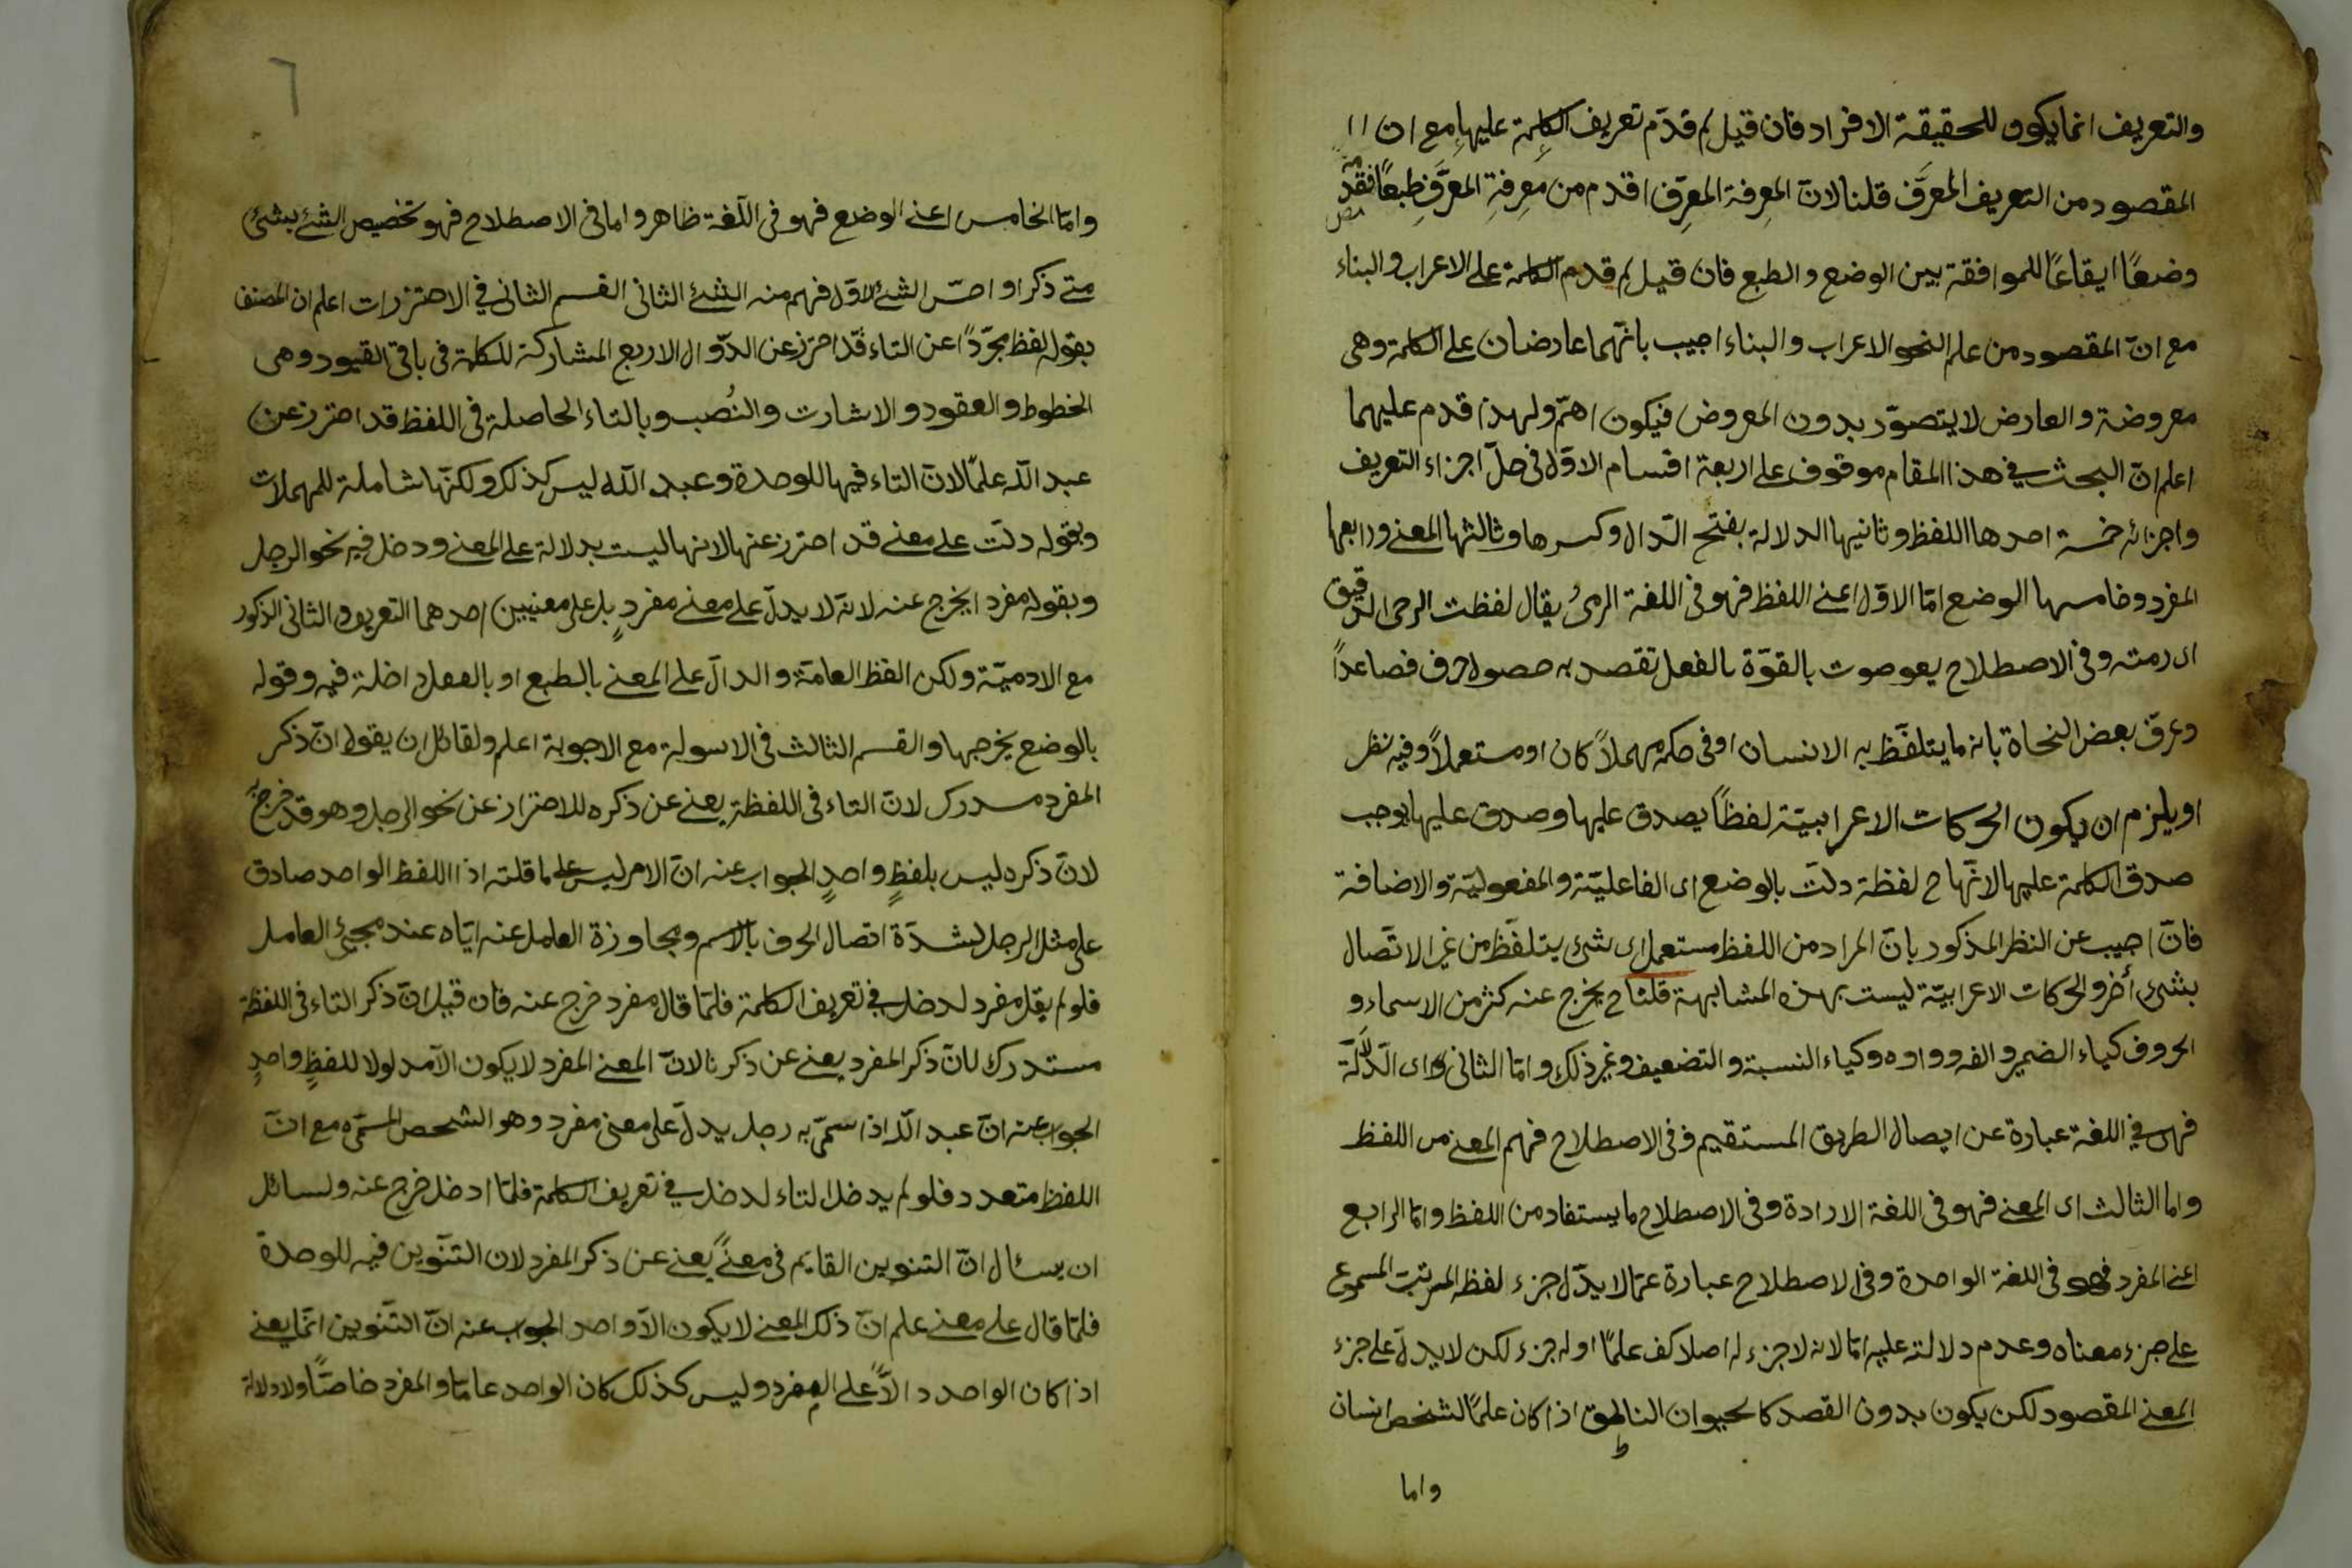 والتعريف انما يكون للحقيقة الافراد فان قيل لم قدّم تعريف الكلمة عليها مع ان
المقصود من التعريف المعرَّف قلنا لانّ المعرفة المعرِّف اقدم من معرفةِ المعرَّفِ طبعًا فقدّمه
وضعًا ايقاعًا للموافقة بين الوضع والطبع فان قيل لم قدم الكلمة على الاعراب والبناء
مع انّ المقصود من علم النحو الاعراب والبناء اجيب بانّهما عارضان على الكلمة وهى
معروضة والعارض لا يتصوّر بدون المعروض فيكون اهمّ ولهذا قدم عليهما
اعلم انّ البحث في هذا المقام موقوف على اربعة اقسام الاوّل فى حلّ اجزاء التعريف
واجزائه خمسة احدها اللفظ وثانيها الدلالة بفتح الدّال وكسرها وثالثها المعنى ورابعها
المفرد وخامسها الوضع امّا الاوّل اعنى اللفظ فهو فى اللغة الرمىُ يقال لفظت الرحى الدقيق
اى رمته وفى الاصطلاح صوت بالقوّة بالفعل تقصد به حصول حرف فصاعداً
وعرّف بعض النحاة بانه ما يتلفّظ به الانسان او فى حكمه مهملاً كان او مستعملاً وفيه نظر
او يلزم ان يكون الحركات الاعرابيّة لفظاً يصدق عليها وصدق عليها يوجب
صدق الكلمة عليها لانّها ح لفظة دلّت بالوضع اى الفاعليّة والمفعوليّة والاضافة
فانّ اجيب عن النظر المذكور بانّ المراد من اللفظ مستعمل اى شىء يتلفّظ من غير الاتّصال
بشىء أخر والحركات الاعرابيّة ليست بهذه المشابهة قلنا ح يخرج عنه كثر من الاسماء و
الحروف كياء الضمير والفه وواوه وكياء النسبة والتضعيف وغير ذلك وامّا الثانى اى الدّلالة
فهى في اللغة عبارة عن ايصال الطريق المستقيم وفى الاصطلاح فهم المعنى من اللفظ
واما الثالث اى المعنى فهو فى اللغة الارادة وفى الاصطلاح ما يستفاد من اللفظ وامّا الرابع
اعنى المفرد فهو فى اللغة الواحدة وفى الاصطلاح عبارة عمّا لا يدّل جزء لفظه المرتّب المسموع
على جزء معناه وعدم دلالته عليه امّا لانه لا جزء له اصلا كف علمًا او له جزء لكن لا يدلّ على جزء
المعنى المقصود لكن يكون بدون القصد كالحيوان الناطق اذا كان علمًا لشخص انسان
واما
٦
وامّا الخامس اعنى الوضع فهو فى اللّغة ظاهر واما فى الاصطلاح فهو تخصيص الشئ بشئ
متى ذكر او احسّ الشئ الاوّل فهم منه الشئ الثانى القسم الثانى في الاحترزات اعلم ان المصنف
بقوله لفظ مجرّداً عن التاء قد احترز عن الدّوال الاربع المشاركة للكلمة فى باقى القيود وهى
الخطوط والعقود والاشارت والنُصب وبالتاء الحاصلة فى اللفظ قد احترز عن
عبد الله علمًا لانّ التاء فيها للوحدة وعبد الله ليس كذلك ولكنّها شاملة للمهملات
وبقوله دلّت على معنى قد احترز عنها لانها ليست بدلالة على المعنى ودخل فيه نحو الرجل
وبقوله مفرد ايخرج عنه لانّه لا يدلّ على معنى مفردٍ بل على معنيين احدهما التعريف والثانى الذكور
مع الادميّة ولكن الفظ العامّة والدالّ على المعنى بالطبع او بالعقل داخلة فيه وقوله
بالوضع يخرجها والقسم الثالث فى الاسولة مع الاجوبة اعلم ولقائل ان يقول انّ ذكر
المفرد مسدرك لانّ التاء فى اللفظة يعنى عن ذكره للاحتراز عن نحو الرجل وهو قد خرج
لانّ ذكره ليس بلفظٍ واحدٍ الجواب عنه انّ الامر ليس على ما قلته اذا اللفظ الواحد صادق
على مثل الرجل لشدّة اتصال الحرف بالاسم ومجاوزة العامل عنه ايّاه عند مجيئ العامل
فلو لم يقل مفرد لدخل في تعريف الكلمة فلمّا قال مفرد خرج عنه فان قيل انّ ذكر التاء فى اللفظة
مستدرك لانّ ذكر المفرد يعنى عن ذكرنا لانّ المعنى المفرد لا يكون الّا مدلولا للفظٍ واحدٍ
الجواب عنه انّ عبد اللّه اذا سمّى به رجل يدلّ على معنى مفرد وهو الشخص المسمّى مع انّ
اللفظ متعدد فلو لم يدخل التاء لدخل في تعريف الكلمة فلمّا ادخل خرج عنه ولسائل
ان يسئال انّ التنوين القايم فى معنىً يعنى عن ذكر المفرد لان التنّوين فيه للوحدة
فلمّا قال على معنى علم انّ ذلك المعنى لا يكون الّا واحد الجواب عنه انّ التّنوين انّما يعنى
اذا كان الواحد دالاًّ على المفرد وليس كذلك كان الواحد عامّا والمفرد خاصّاً ولا دلالة